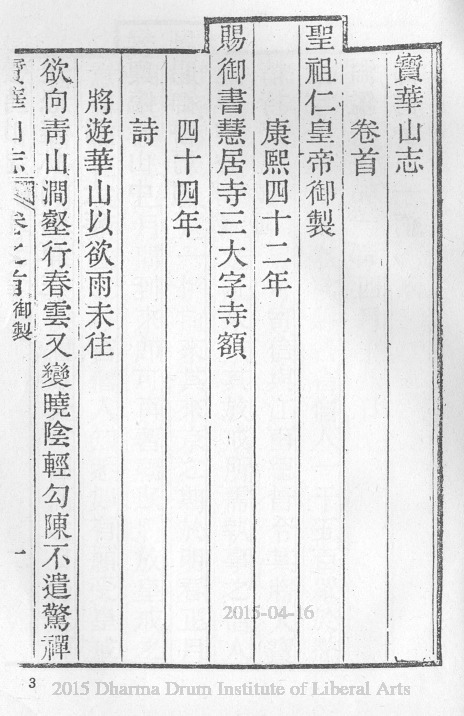 寶華山志
卷首
聖祖仁皇帝御製
康熙四十二年
賜御書慧居寺三大字寺額
四十四年
詩
將遊華山以欲雨未往
欲向靑山澗壑行春雲又變曉陰輕勾陳不遣驚禪
寶華山志 卷之首 御製 一
2015-04-16
3
2015 Dharma Drum Institute of Liberal Arts